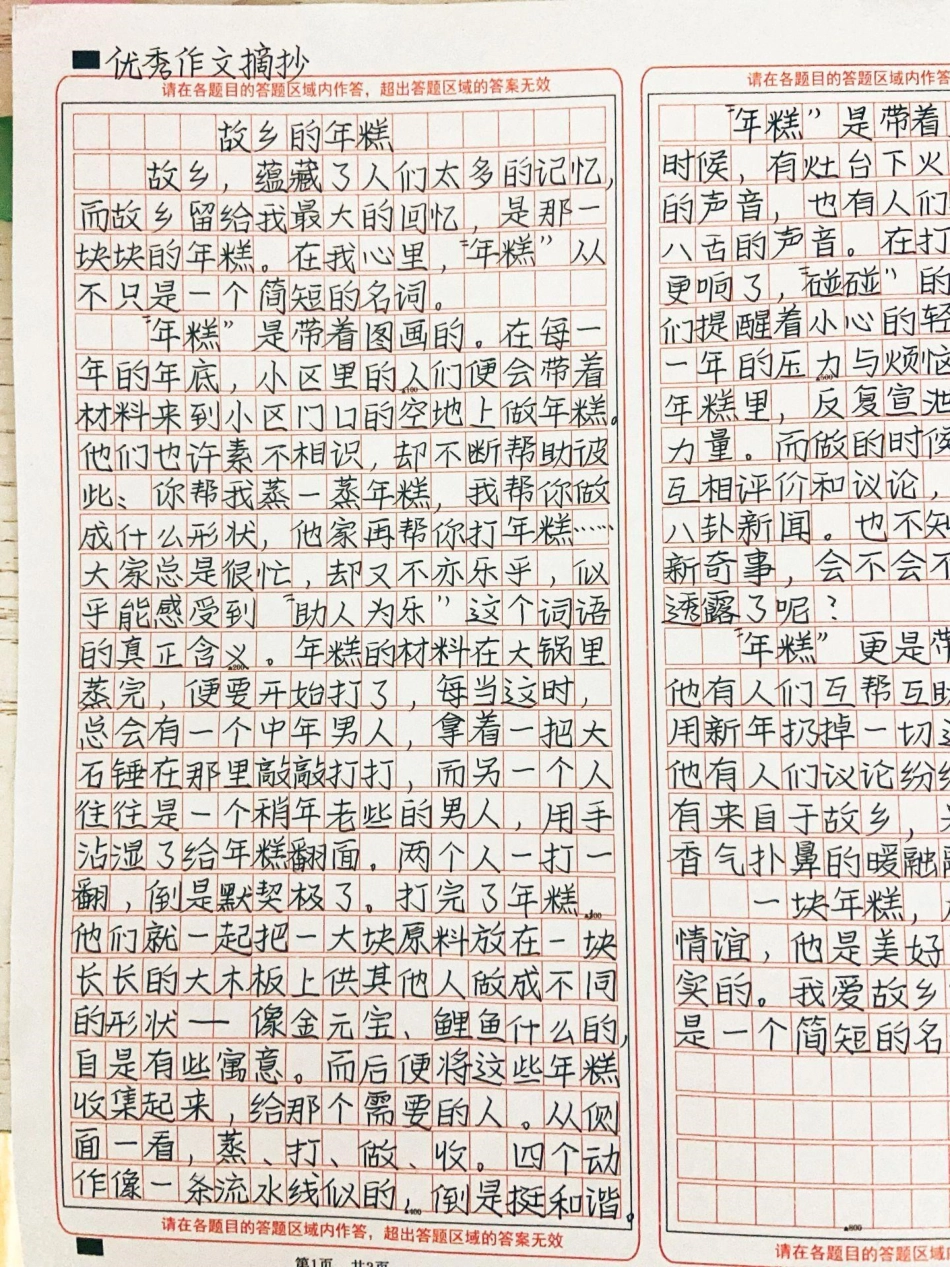 优秀作文摘抄
请在各题目的答题区域内作答，超出答题区域的答案无效
故乡的年糕
故乡，蕴藏了人们太多的记忆，
而故乡留给我最大的回忆，是那一
块块的年糕。在我心里，“年糕”从
不只是一个简短的名词。
“年糕”是带着图画的。在每一
年的年底，小区里的人们便会带着
材料来到小区门口的空地上做年糕。
他们也许素不相识，却不断帮助彼
此：你帮我蒸一蒸年糕，我帮你做
成什么形状，他家再帮你打年糕……
大家总是很忙，却又不亦乐乎，似
乎能感受到“助人为乐”这个词语
的真正含义。年糕的材料在大锅里
蒸完，便要开始打了，每当这时，
总会有一个中年男人，拿着一把大
石锤在那里敲敲打打，而另一个人
往往是一个稍年老些的男人，用手
沾湿了给年糕翻面。两个人一打一
翻，倒是默契极了。打完了年糕
他们就一起把一大块原料放在一块
长长的大木板上供其他人做成不同
的形状——像金元宝、鲤鱼什么的，
自是有些寓意。而后便将这些年糕
收集起来，给那个需要的人。从侧
面一看，蒸、打、做、收。四个动
作像一条流水线似的，倒是挺和谐。
请在各题目的答题区域内作答，超出答题区域的答案无效
第1页 共2页
请在各题目的答题区域内作答
“年糕”是带着
时候，有灶台下火
的声音，也有人们
八舌的声音。在打
更响了，“碰碰”的
们提醒着小心的轻
一年的压力与烦恼
年糕里，反复宣泄
力量。而做的时候
互相评价和议论，
八卦新闻。也不知
新奇事，会不会不
透露了呢？
“年糕”更是带
他有人们互帮互助
用新年扔掉一切
他有人们议论纷纷
有来自于故乡，
香气扑鼻的暖融融
一块年糕，
情谊，他是美好
实的。我爱故乡
是一个简短的名
请在各题目的答题区域内